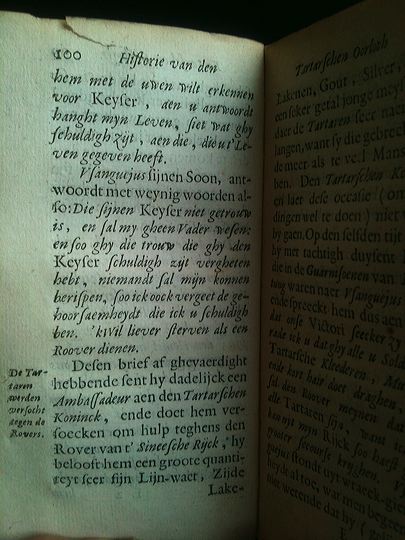 100 Historie van den
hem met de uwen wilt erkennen
voor Keyser, aen u antwoordt
hanght mijn Leven, siet wat ghy
schuldigh zijt, aen die, die u t' Le-
ven gegeven heeft.
Vsanguejus sijnen Soon, ant-
woordt met weynig woorden al-
so: Die sijnen Keyser niet getrouw
is, en sal my gheen Vader wesen:
en soo ghy die trouw die ghy den
Keyser schuldigh zijt vergheten
hebt, niemandt sal mijn konnen
berispen, soo ick oock vergeet de ge-
hoorsaemheydt die ick u schuldigh
ben. 'k Wil liever sterven als een
Roover dienen.
Desen brief af ghevaerdight
hebbende sent hy dadelijck een
Ambassadeur aen den Tartarschen
Koninck, ende doet hem ver-
soecken om hulp teghens den
Rover van t' Sineesche Rijck, hy
belooft hem een groote quanti-
teyt seer fijn Lijn-waet, Zijde
Lake-
De Tar-
taren
werden
versocht
tegen de
Rovers.
Tartarschen Oorloch
Lakenen, Gout, Silver,
een seker getal jonge
daer de Tartaren seer
langen, want sy die gebreck
de meer als te vel Mans
ben. Den Tartarschen
en laet dese occasie
dingen wel te doen) niet
by gaen. Op den selfden tijt
hy met tachtigh duysent
die in de Guarnisoenen van
tung waren naer Vsanguejus
ende spreeckt hem dus aen
dat onse Victori seecker zy
rade ick u dat ghy alle u
Tartarsche Kleederen,
ende kort hair doet draghen,
sal den Rover meynen dat
alle Tartaren zijn, want
Rijck soo haest
grooter secourse krijghen.